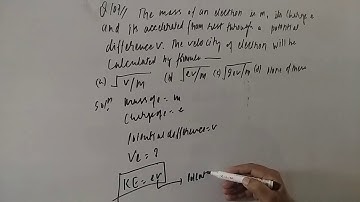 Q(07)// The mass of an electron is m, its charge e
and its accelerated from rest through a potential
difference v. The velocity of electron will be
calculated by formula
(a) √v/m (b) √ev/m (c) √2ev/m (d) none of these
Solⁿ: mass of e = m
charge of e = e
Potential difference = v
Ve = ?
KE = eV →